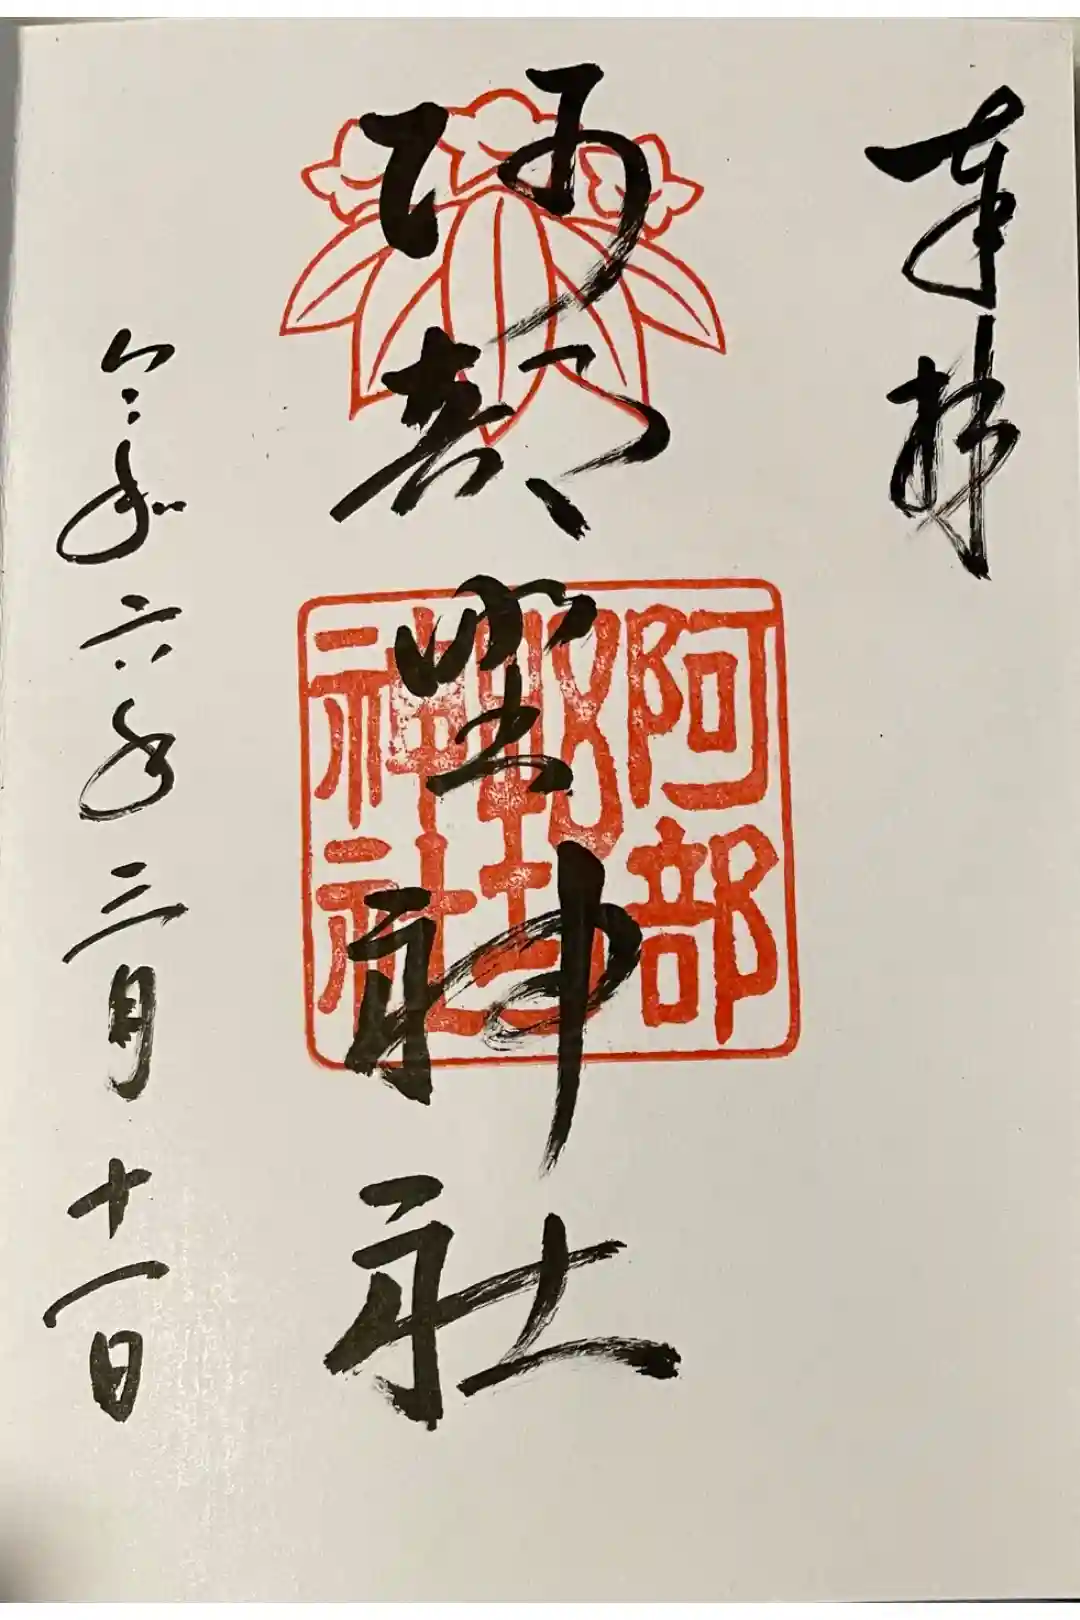 奉拝
阿部野神社
令和六年三月十一日
阿部
野
神社